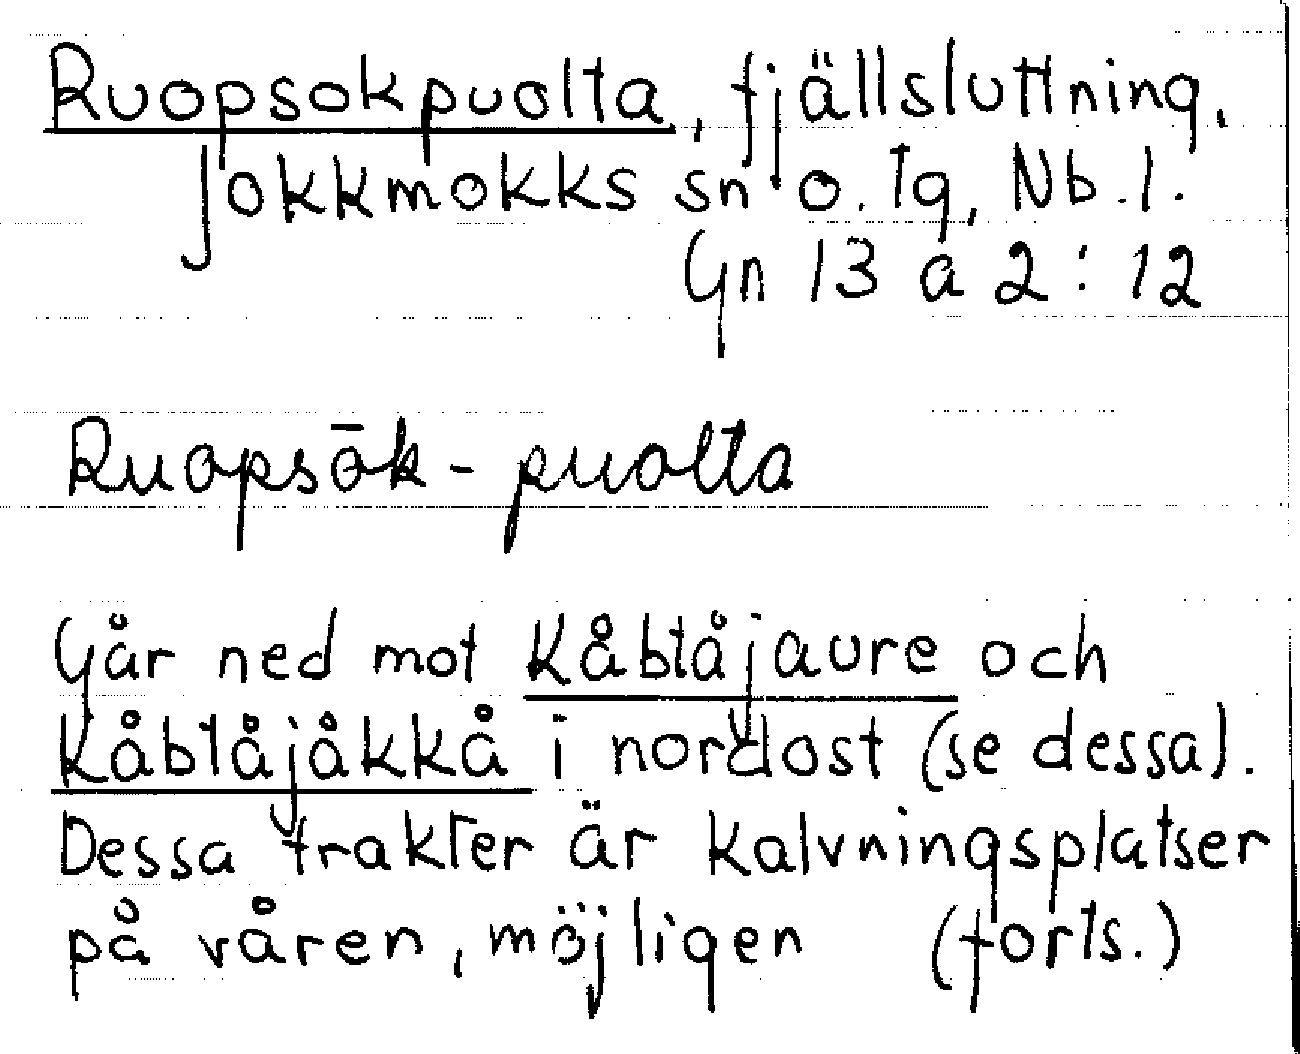 Ruopsokpuolta, fjällsluttning,
Jokkmokks sn o. tg, Nb. l.
Gn 13 a 2 : 12
Ruopsōk - puolta
Går ned mot Kåbtåjaure och
Kåbtåjåkkå i nordost (se dessa).
Dessa trakter är kalvningsplatser
på våren, möjligen (forts.)